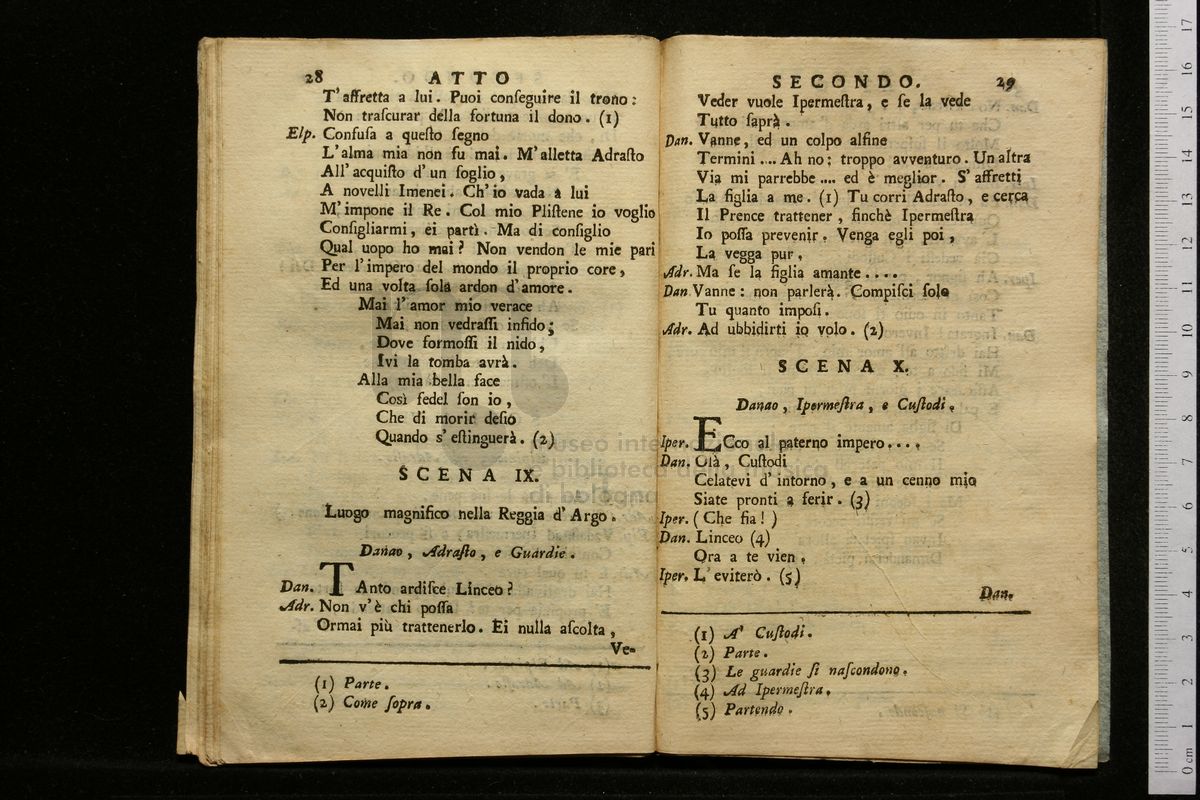 28 ATTO
T'affretta a lui. Puoi conſeguire il trono:
Non traſcurar della fortuna il dono. (1)
Elp. Confuſa a queſto ſegno
L'alma mia non fu mai. M'alletta Adraſto
All'acquiſto d'un ſoglio,
A novelli Imenei. Ch'io vada a lui
M'impone il Re. Col mio Pliſtene io voglio
Conſigliarmi, ei partì. Ma di conſiglio
Qual uopo ho mai? Non vendon le mie pari
Per l'impero del mondo il proprio core,
Ed una volta ſola ardon d'amore.
Mai l'amor mio verace
Mai non vedraſſi infido;
Dove formoſſi il nido,
Ivi la tomba avrà.
Alla mia bella face
Così fedel ſon io,
Che di morir deſio
Quando s'eſtinguerà. (2)
SCENA IX.
Luogo magnifico nella Reggia d'Argo.
Danao, Adraſto, e Guardie.
Dan. TAnto ardiſce Linceo?
Adr. Non v'è chi poſſa
Ormai più trattenerlo. Ei nulla aſcolta,
Ve-
(1) Parte.
(2) Come ſopra.
SECONDO. 29
Veder vuole Ipermeſtra, e ſe la vede
Tutto ſaprà.
Dan. Vanne, ed un colpo alfine
Termini .... Ah no: troppo avventuro. Un altra
Via mi parrebbe .... ed è meglior. S'affretti
La figlia a me. (1) Tu corri Adraſto, e cerca
Il Prence trattener, finchè Ipermeſtra
Io poſſa prevenir. Venga egli poi,
La vegga pur.
Adr. Ma ſe la figlia amante ....
Dan Vanne: non parlerà. Compiſci ſolo
Tu quanto impoſi.
Adr. Ad ubbidirti io volo. (2)
SCENA X.
Danao, Ipermeſtra, e Cuſtodi.
Iper. ECco al paterno impero....
Dan. Olà, Cuſtodi
Celatevi d'intorno, e a un cenno mio
Siate pronti a ferir. (3)
Iper. (Che fia!)
Dan. Linceo (4)
Ora a te vien.
Iper. L'eviterò. (5)
Dan.
(1) A' Cuſtodi.
(2) Parte.
(3) Le guardie ſi naſcondono.
(4) Ad Ipermeſtra.
(5) Partendo.